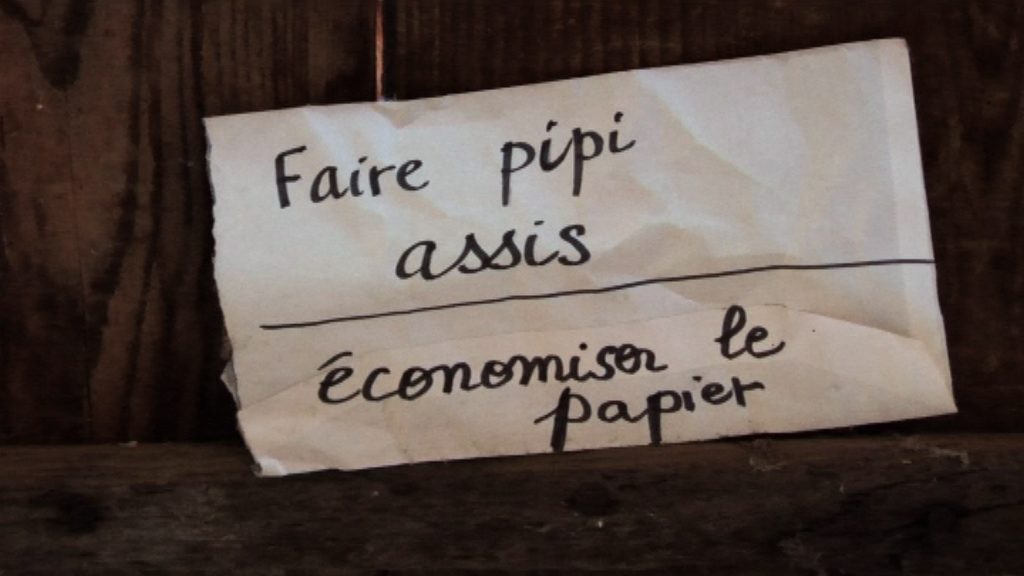 Faire pipi
assis
économiser le
papier